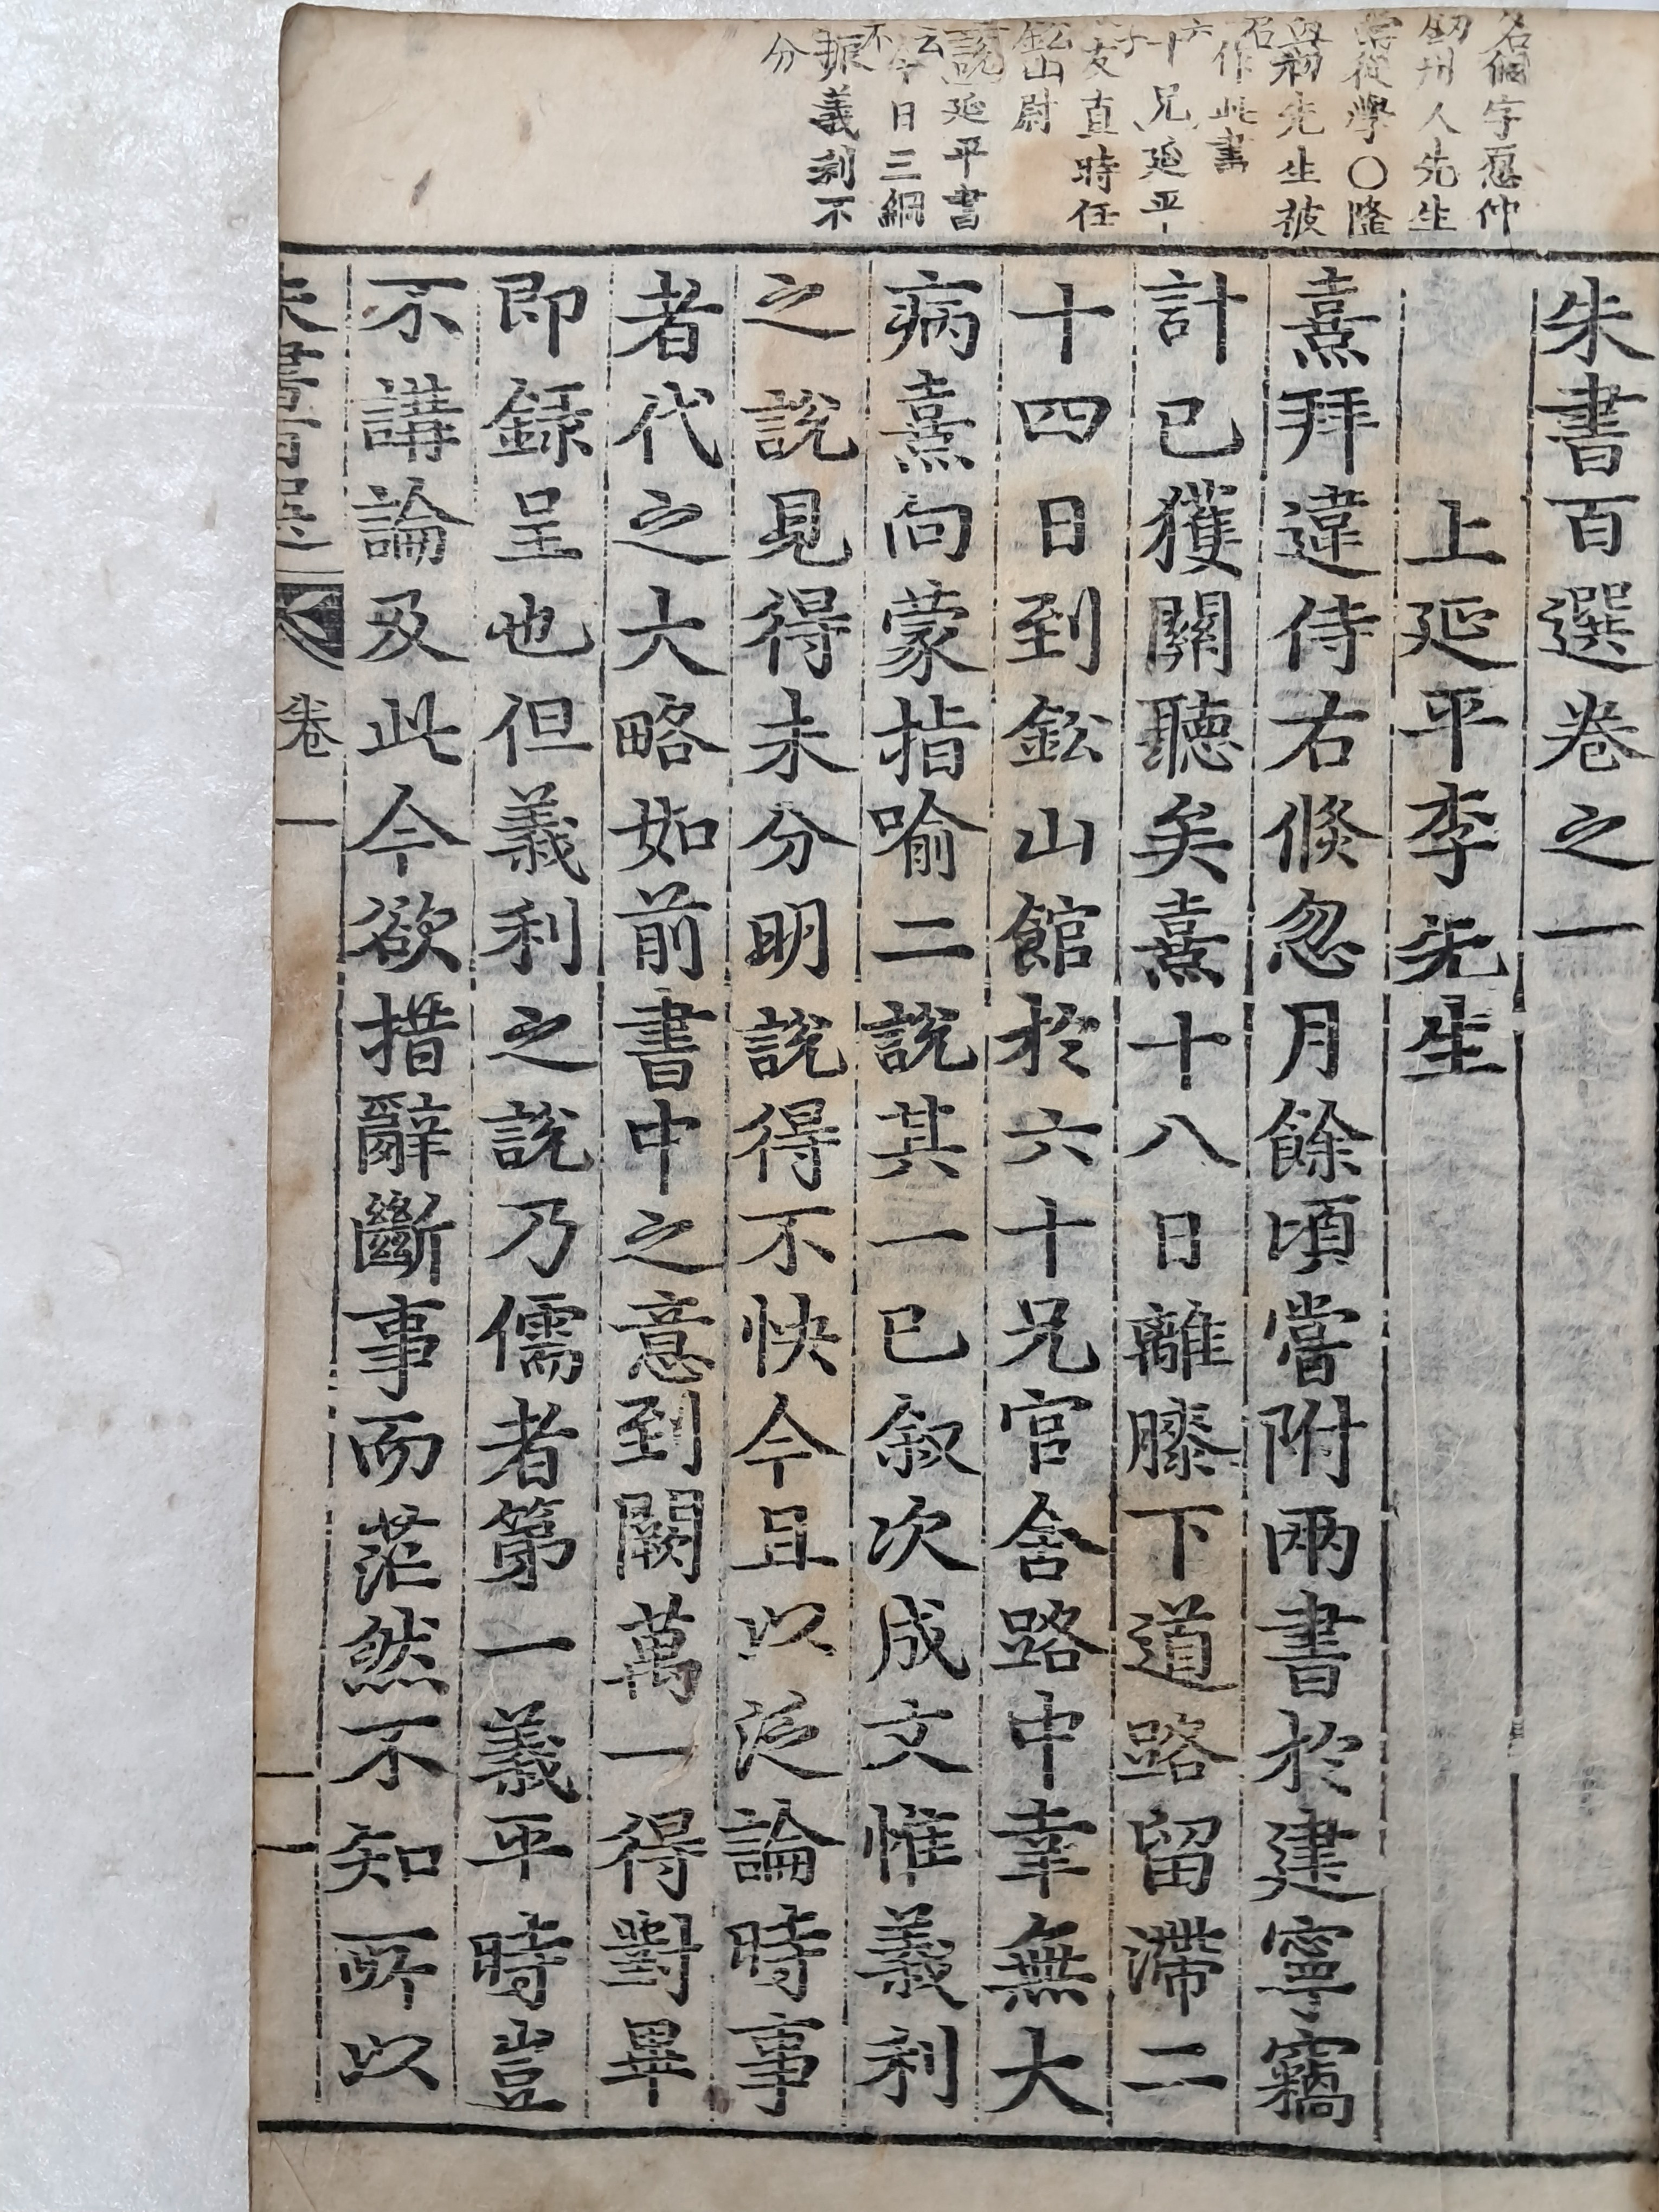 名侗字愿仲
劒州人先生
甞從學○隆
興初先生被
召作此書
六十兄延平
子友直時任
鈆山尉
說延平書
云今日三綱
不振義利不
分
朱書百選卷之一
上延平李先生
熹拜違侍右倐忽月餘頃嘗附兩書於建寧竊
計已獲關聽矣熹十八日離膝下道路留滯二
十四日到鈆山館於六十兄官舍路中幸無大
病熹向蒙指喻二說其一已叙次成文惟義利
之說見得未分明說得不快今且以泛論時事
者代之大略如前書中之意到闕萬一得對畢
即錄呈也但義利之說乃儒者第一義平時豈
不講論及此今欲措辭斷事而茫然不知所以
朱書百選 卷一 一